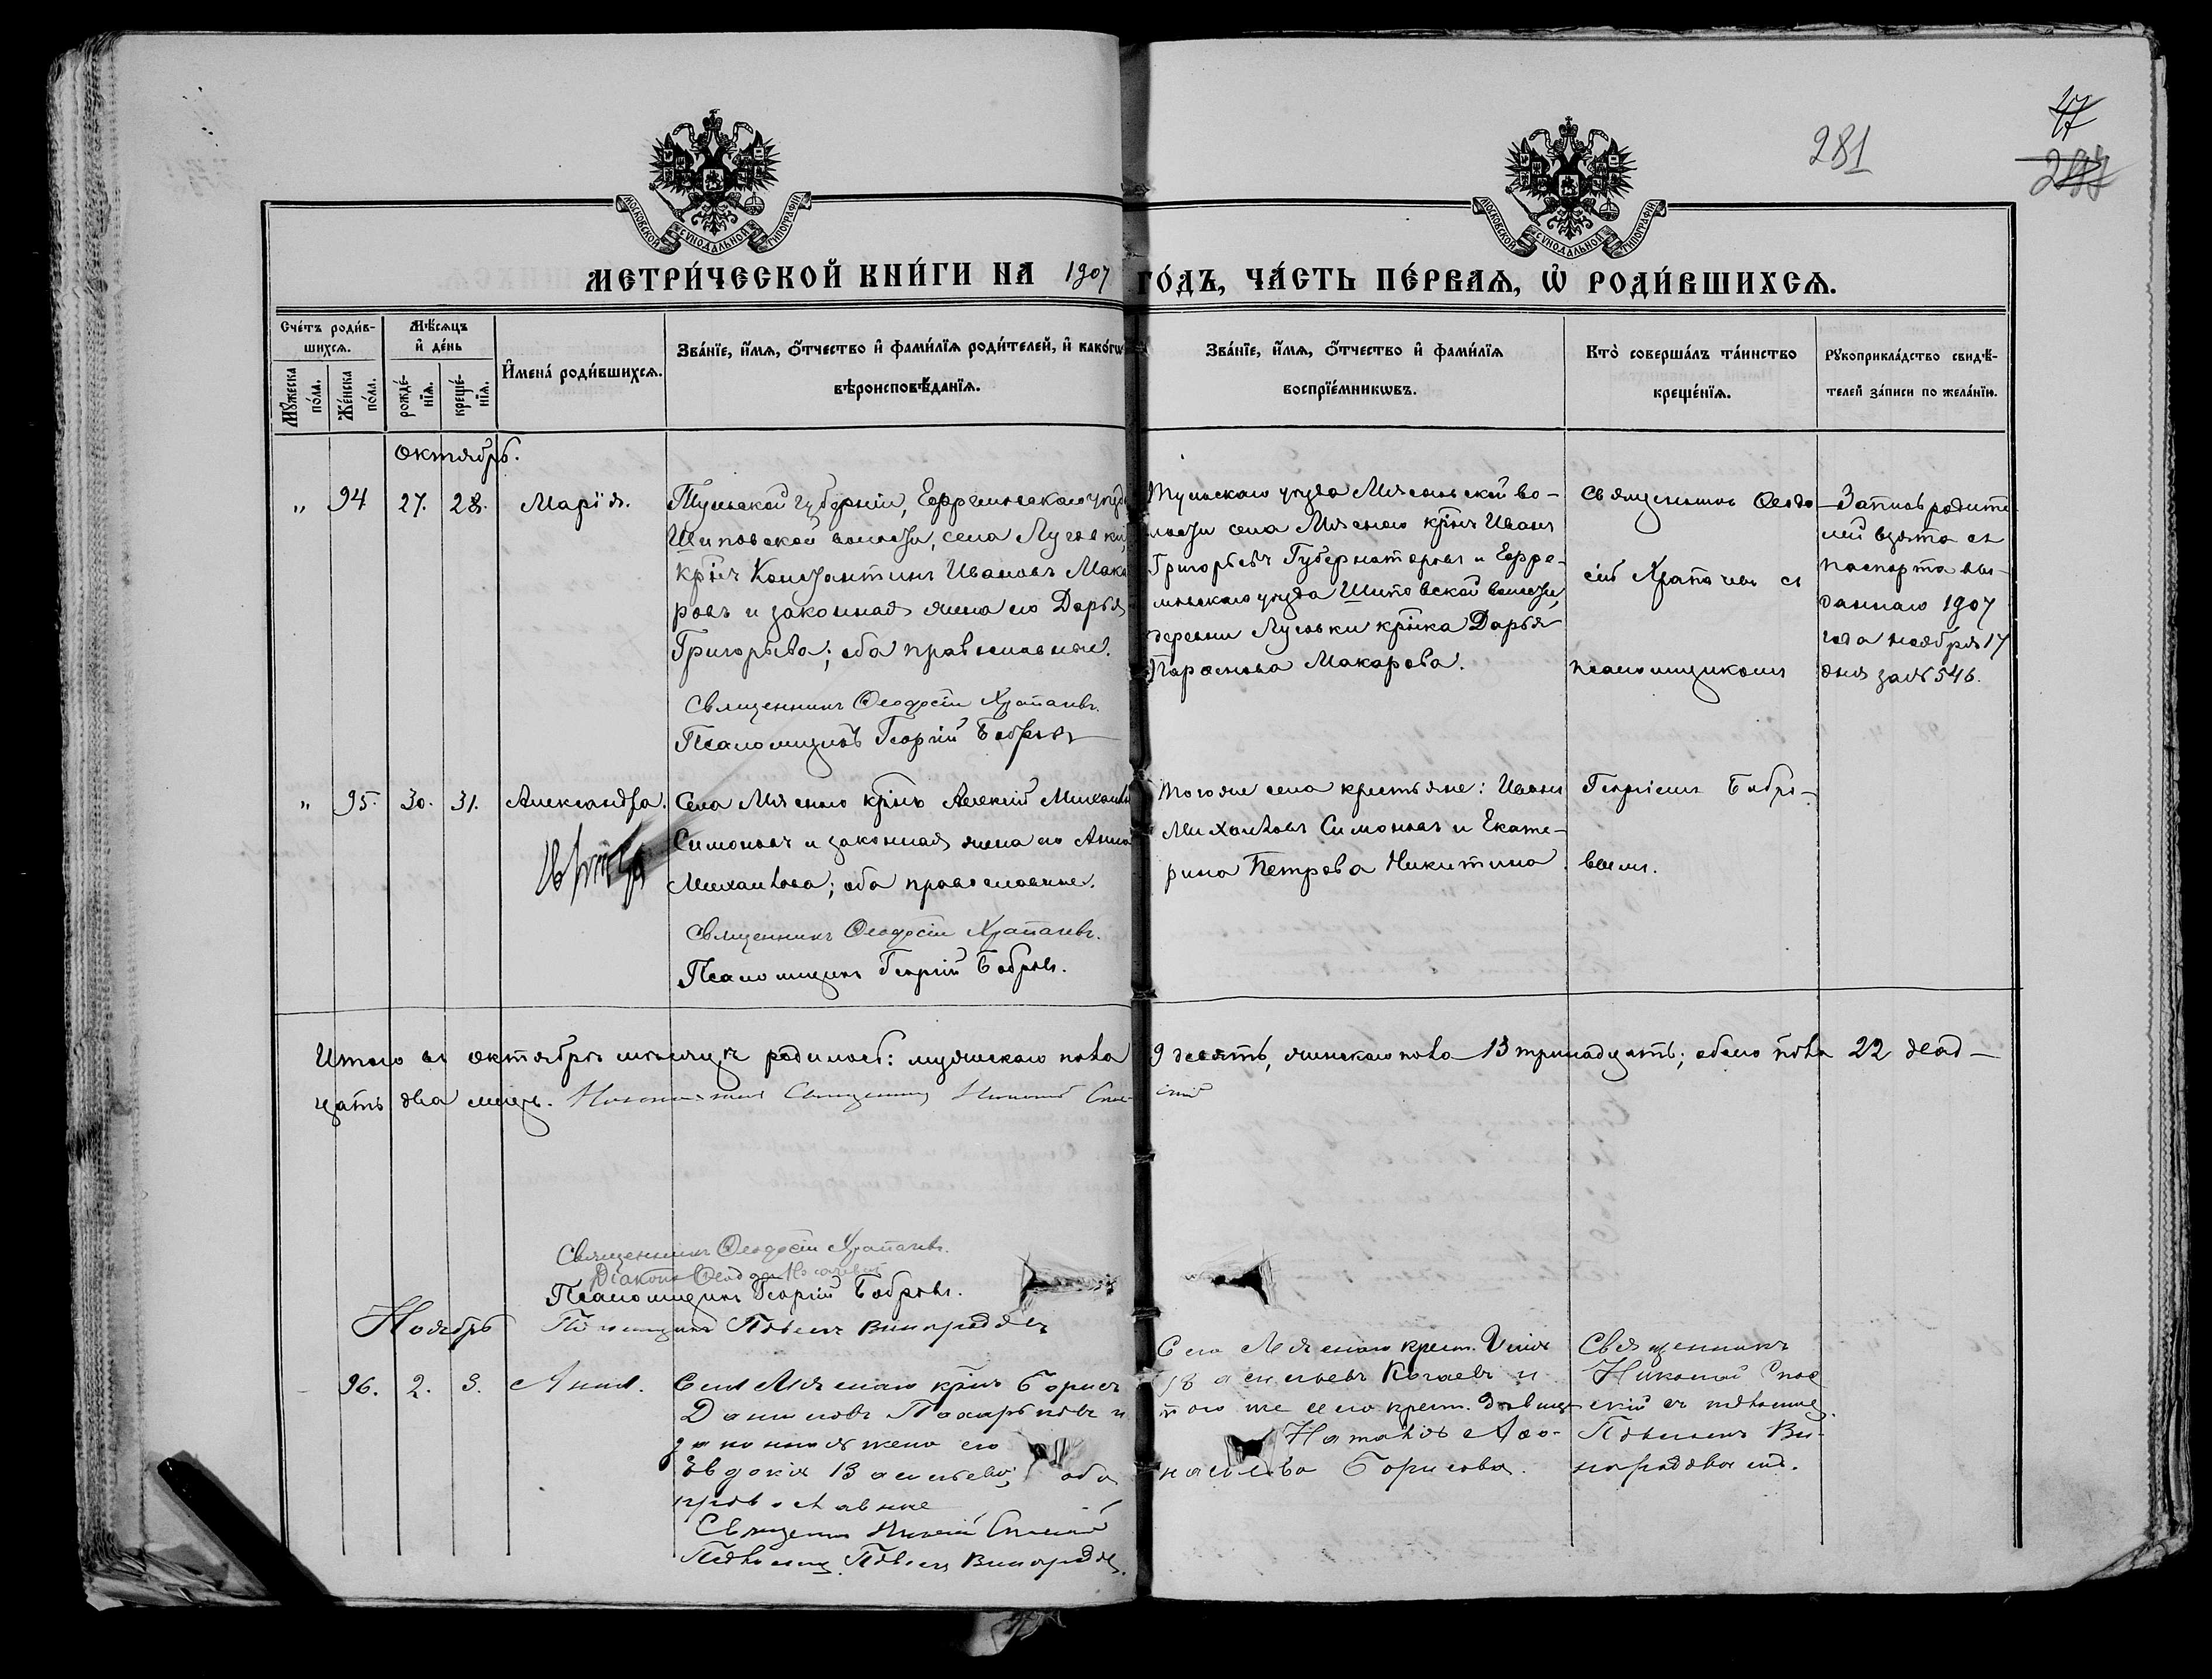 47
281
МОСКОВСКОЙ СѴНОДАЛЬНОЙ ТИПОГРАФІИ
МОСКОВСКОЙ СѴНОДАЛЬНОЙ ТИПОГРАФІИ
МЕТРИ́ЧЕСКОЙ КНИ́ГИ НА 1907 ГО́ДЪ, ЧА́СТЬ ПЕ́РВАѦ, Ѡ҆ РОДИ́ВШИХСѦ.
Сче́тъ роди́в-
шихсѧ.
Мꙋ́жеска по́ла.
Же́нска по́ла.
Мѣ́сѧцъ
и҆ де́нь
рожде́-
нїѧ.
креще́-
нїѧ.
И҆мена̀ роди́вшихсѧ.
Зва́нїе, и҆́мѧ, ѻ҆́тчество и҆ фами́лїѧ роди́телей, и҆ како́гѡ
вѣроисповѣ́данїѧ.
Зва́нїе, и҆́мѧ, ѻ҆́тчество и҆ фами́лїѧ
воспрїе́мникѡвъ.
Кто̀ соверша́лъ та́инство
креще́нїѧ.
Рꙋкоприкла́дство свидѣ́-
телей за́писи по жела́нїю.
Октябрь.
" 94 27. 28. Марія.
Тульской губерніи, Ефремовскаго уѣзда
Шиповской волости, села Лу
кр҃нъ Константинъ Ивановъ Мака
ровъ и законная жена его Дарья
Григорьева; оба православные.
Священникъ Ѳеодосій Храпачевъ.
Псаломщикъ Георгій Бобровъ
Тульскаго уѣзда Мясновской во-
лости села Мяснаго кр҃нъ Иванъ
Григорьевъ Губернаторовъ и Ефре-
мовскаго уѣзда Шиповской волости,
деревни кр҃нка Дарья
Макарова.
Священникъ Ѳеодо
сій Храпачевъ съ
псаломщикомъ
Запись родите
лей взята съ
паспорта вы-
даннаго 1907
года ноября 17
дня за № 546.
" 95. 30. 31. Александра.
Села Мяснаго кр҃нъ Алексій Михаиловъ
Симоновъ и законная жена его Анна
Михаилова; оба православные.
Священникъ Ѳеодосій Храпачевъ.
Псаломщикъ Георгій Бобровъ.
Того же села крестьяне: Иванъ
Михаиловъ Симоновъ и Екате-
рина Петрова Никитина.
Георгіемъ Бобро-
вымъ.
Итого въ октябрѣ мѣсяцѣ родилось: мужескаго пола 9 девять, женскаго пола 13 тринадцать; обоего пола 22 двад-
цать два лица. Священникъ Николай Спасскій
Священникъ Ѳеодосій Храпачевъ.
Діаконъ
Псаломщикъ Георгій Бобровъ.
Псаломщикъ Павелъ Виноградовъ
Ноябрь
96. 2. 3. Анна.
Села Мяснаго кр҃нъ Борисъ
Даниловъ и
законная жена его
Евдокія Васильева; оба
православные
Священникъ Николай Спасскій
Псаломщ. Павелъ Виноградовъ.
Села Мяснаго крест. Илія
Васильевъ и
того же села крест. дѣвица
Наталія Аѳо-
насьева Борисова.
Священникъ
Николай Спас
скій съ псаломщ.
Павломъ Ви-
ноградовымъ.